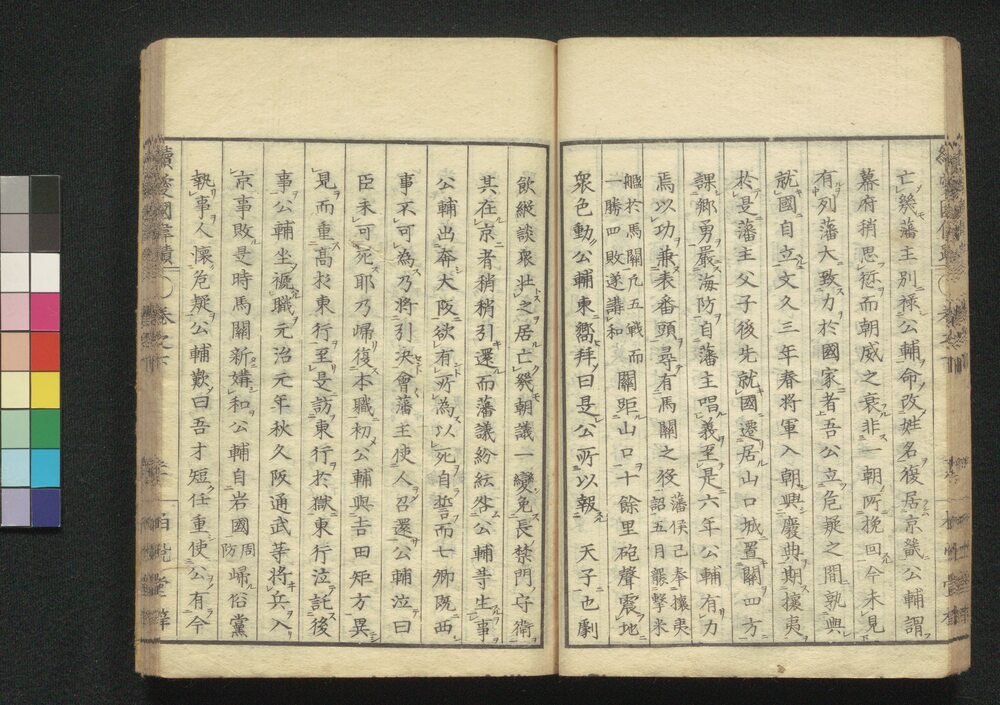 亡幾藩主別祿公輔命改姓名復居京畿公輔謂
幕府稍思愆而朝威之衰非一朝所挽回今未見
有列藩大致力於國家者吾公立危疑之間孰與
就國自立文久三年春將軍入朝興廢典期攘夷
於是藩主父子後先就國還居山口城置關四方
課鄉勇嚴海防自藩主唱義至是六年公輔有力
焉以功兼表番頭尋有馬關之役藩侯已奉攘夷詔五月艤擊米
艦於馬關凡五戰而一勝四敗遂講和關距山口十餘里砲聲震地
衆色動公輔東嚮拜曰是公所以報天子也劇
飲縱談衆壯之居亡幾朝議一變免長禁門守衛
其在京者稍稍引還而藩議紛紜咎公輔等生事
公輔出奔大阪欲有所為以死自誓而七卿既西
事不可為乃將引決會藩主使人召還公輔泣曰
臣未可死耶乃歸復本職初公輔與吉田矩方異
見而重高杉東行至是訪東行於獄東行泣託後
事公輔坐褫職元治元年秋久阪通武等將兵入
京事敗是時馬關新媾和公輔自岩國周防歸俗黨
執事人懷危疑公輔歎曰吾才短任重使公有今
續愛國偉績
卷之下